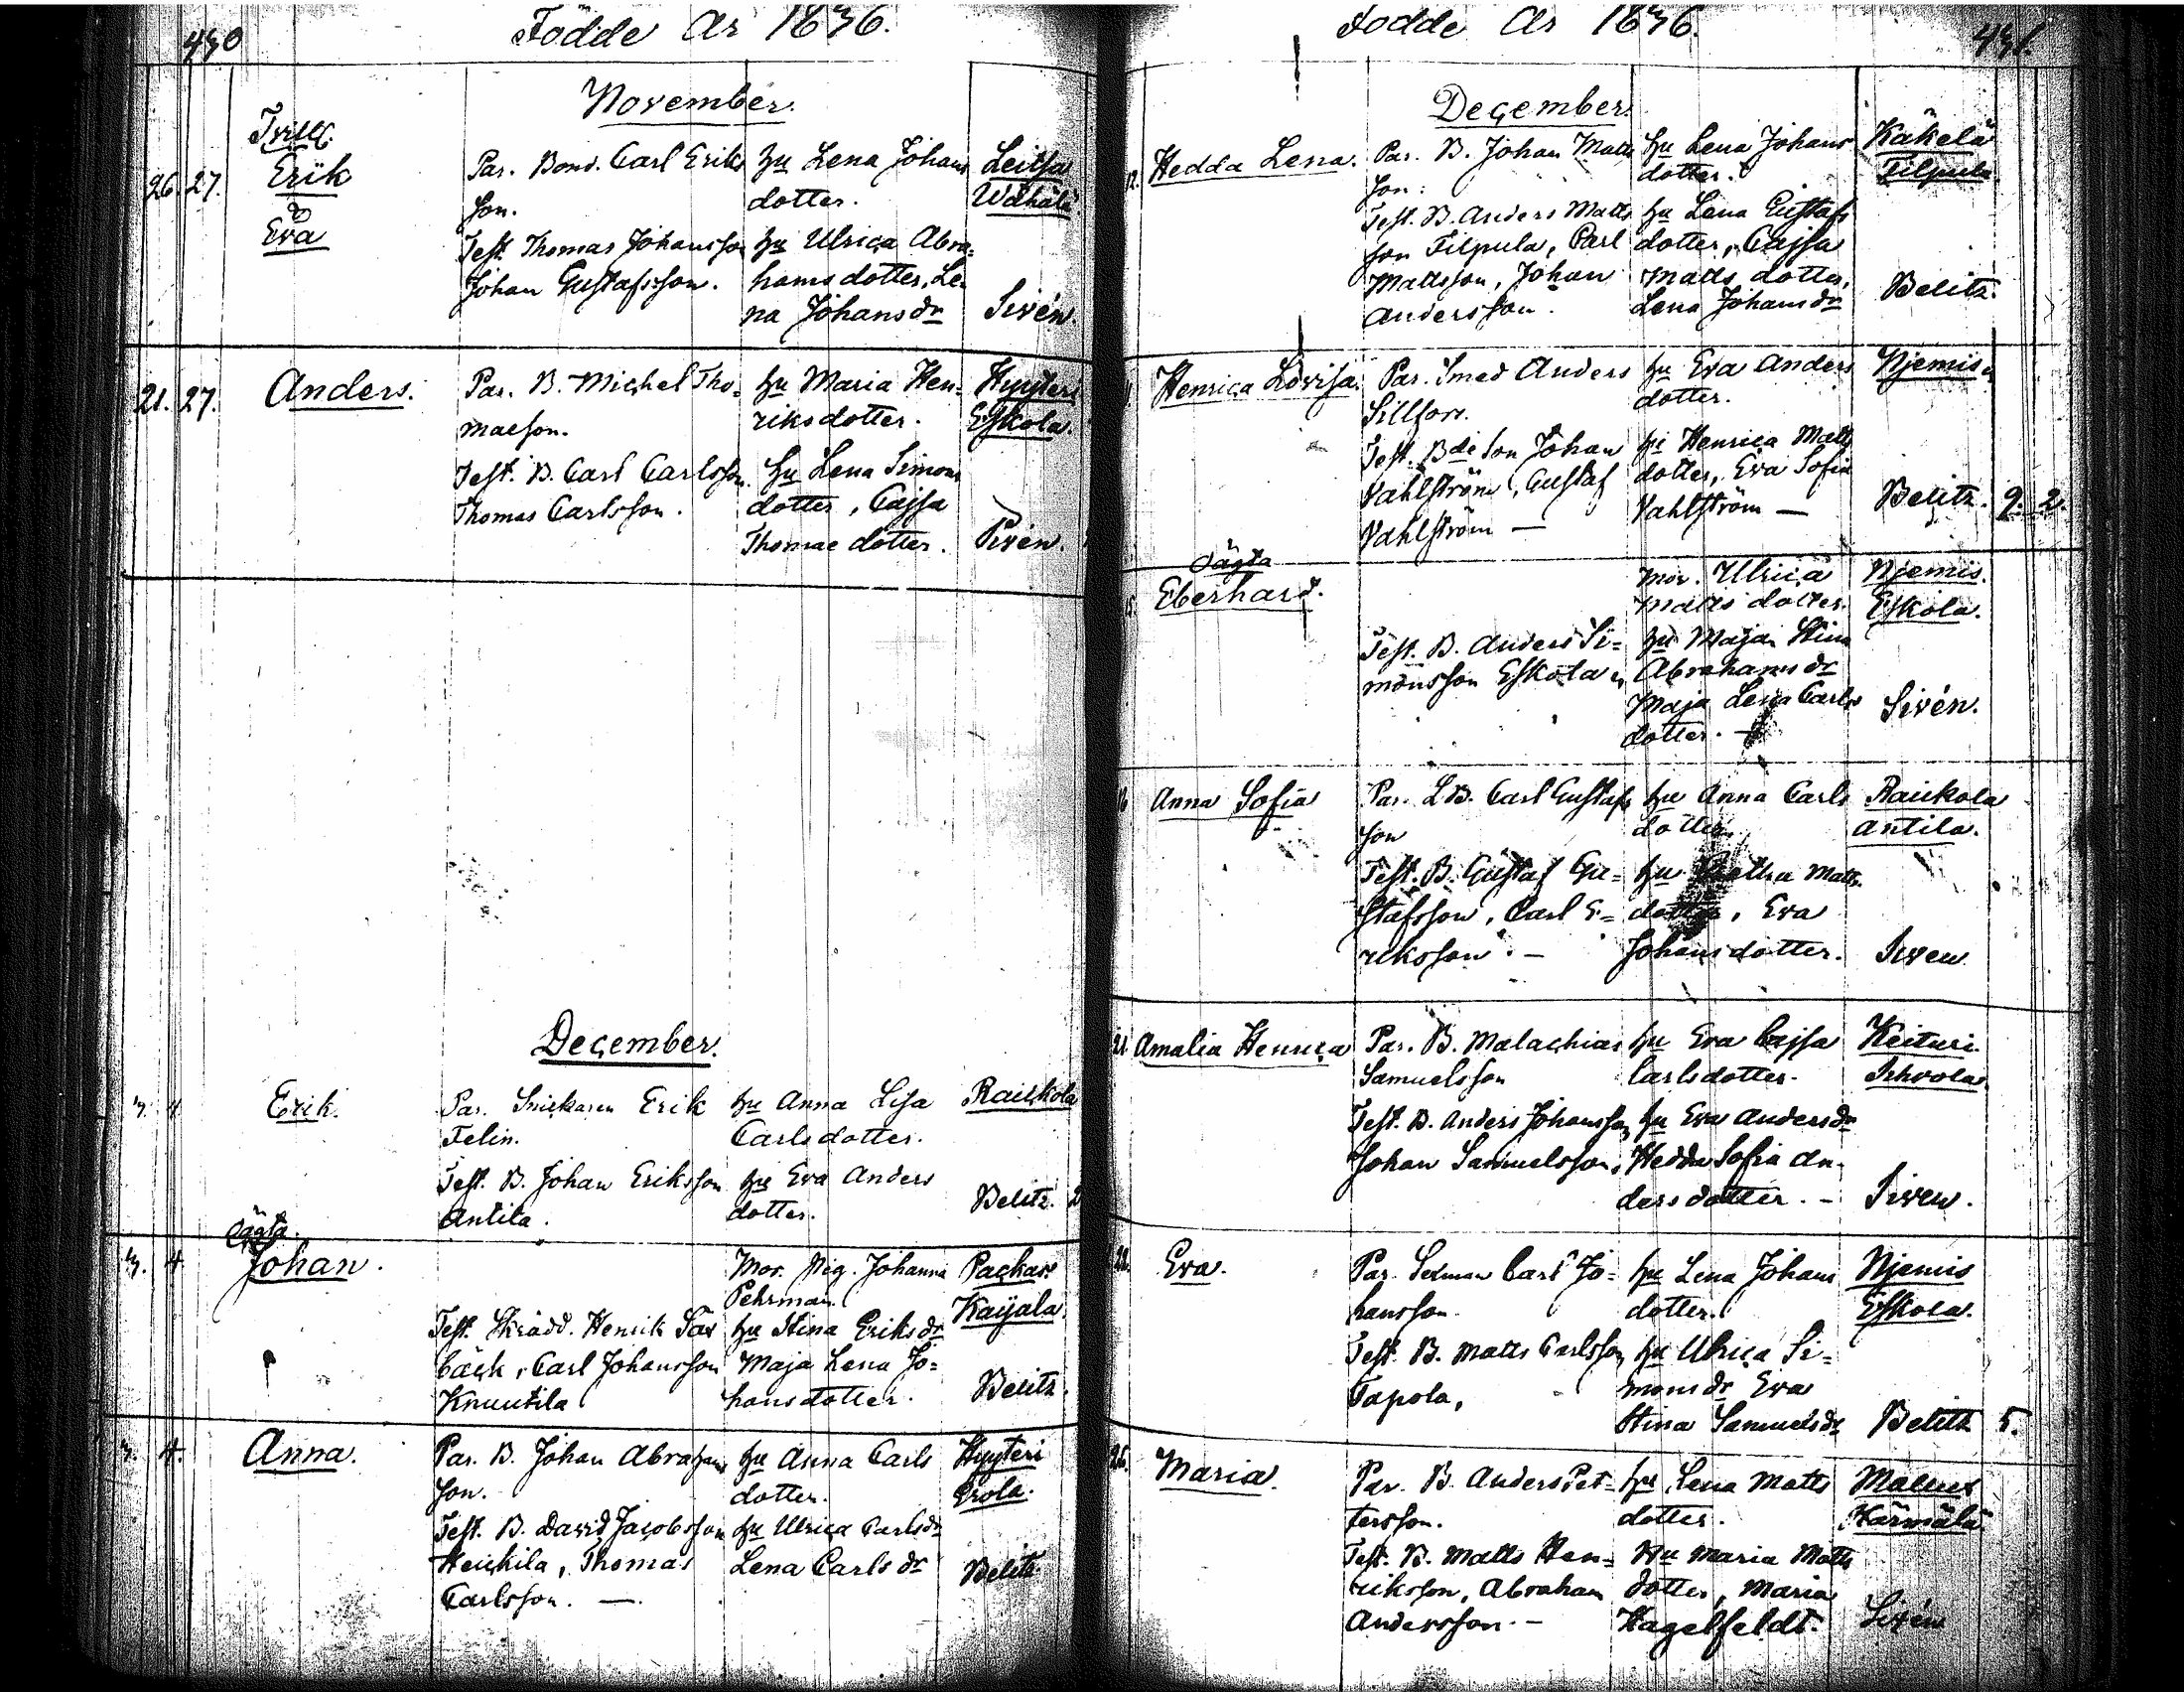 430
Födde År 1836.
November.
Tvill.
Erik
&
Eva
26. 27.
Par. Bond. Carl Eriks
son.
Test. Thomas Johansson
Johan Gustafsson.
hu Lena Johans
dotter.
hu Ulrica Abra-
hams dotter, Le-
na Johans dr
Leitsa
Wähälä.
Sivén.
21. 27.
Anders.
Par. B. Michel Tho-
maeson.
Test. B. Carl Carlsson
Thomas Carlsson.
hu Maria Hen-
riksdotter.
hu Lena Simons
dotter, Cajsa
Thomae dotter.
Hyyteri
Eskola.
Sivén.
December.
3. 4
Erik.
Par. Snickaren Erik
Felin.
Test. B. Johan Eriksson
Antila.
hu Anna Lisa
Carlsdotter.
hu Eva Anders
dotter.
Raickola
Belitz.
3. 4.
oägta.
Johan.
Test. Skrädd. Henrik Sax
bäck, Carl Johansson
Knuutila
Mor. Pig. Johanna
Pehrman.
hu Stina Eriks dr
Maja Lena Jo-
hansdotter.
Pachar
Kaijala.
Belitz.
3. 4.
Anna.
Par. B. Johan Abrahams
son.
Test. B. David Jacobsson
Heickila, Thomas
Carlsson. —
hu Anna Carls
dotter.
hu Ulrica Carls dr
Lena Carls dr
Hyyteri
Erola.
Belitz.
Födde År 1836.
431.
December.
12.
Hedda Lena.
Par. B. Johan Matts
son.
Test. B. Anders Matts
son Filpula, Carl
Mattsson, Johan
Andersson.
hu Lena Johans
dotter.
hu Lena Gustafs
dotter, Cajsa
Matts dotter,
Lena Johans dr
Käkelä
Filpula.
Belitz.
Henrica Lovisa.
Par. Smed Anders
Sillfors.
Test. Bde Son Johan
Vahlström, Gustaf
Vahlström —
hu Eva Anders
dotter.
pi Henrica Matts
dotter, Eva Sofia
Vahlström —
Njemis
Belitz. 9. 2.
oägta
15.
Eberhard.
Test. B. Anders Si-
monsson Eskola
Mor. Ulrica
Matts dotter.
hu Maja Stina
Abrahams dr
Maja Lena Carls
dotter. —
Njemis.
Eskola.
Sivén.
16
Anna Sofia
Par. L.B. Carl Gustafs
son
Test. B. Gustaf Gu-
stafsson, Carl E-
riksson. —
hu Anna Carls
dotter.
hu Matts
dotter, Eva
Johansdotter.
Raickola
Antila.
Siven
21.
Amalia Henrica
Par. B. Malachias
Samuelsson
Test. B. Anders Johansson
Johan Samuelsson,
hu Eva Cajsa
Carlsdotter.
hu Eva Anders dr
Hedda Sofia An-
dersdotter. —
Keituri
Siven.
22.
Eva.
Par. Sexman Carl Jo-
hansson.
Test. B. Matts Carlsson
Tapola,
hu Lena Johans
dotter.
hu Ulrica Si-
mons dr Eva
Stina Samuels dr
Njemis
Eskola.
Belitz 5.
26.
Maria.
Par. B. Anders Pet-
tersson.
Test. B. Matts Hen-
riksson, Abraham
Andersson. —
hu Lena Matts
dotter.
Hu Maria Matts
dotter, Maria
Hagelfeldt.
Härmälä
Sivén